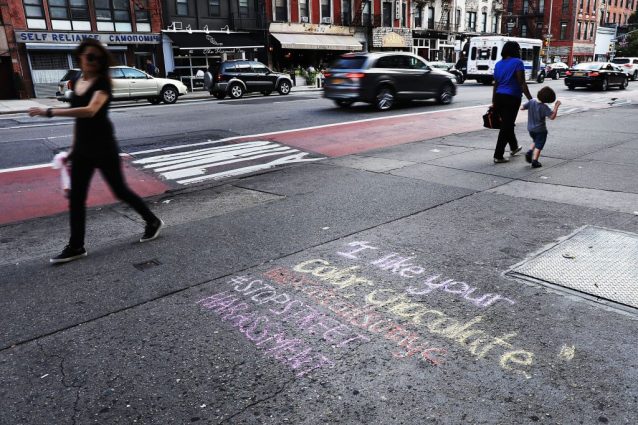 SELF RELIANCE
I like your
color chocolate
#STOPSTREET
HARASSMENT